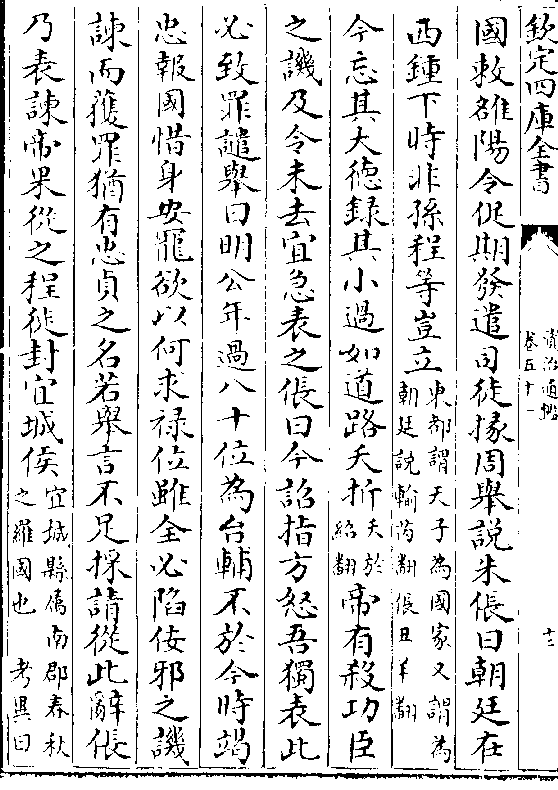 欽定四庫全書
資治通鑑
卷五十一
國敕雒陽令促期發遣司徒掾周舉說朱倀曰朝廷在
西鍾下時非孫程等豈立東都謂天子為國家又謂為朝廷說輸芮翻倀丑羊翻
今忘其大德録其小過如道路夭折夭於紹翻帝有殺功臣
之譏及今未去宜急表之倀曰今詔指方怒吾獨表此
必致罪譴舉曰明公年過八十位為台輔不於今時竭
忠報國惜身安寵欲以何求禄位雖全必陷佞邪之譏
諫而獲罪猶有忠貞之名若舉言不足採請從此辭倀
乃表諫帝果從之程徙封宜城侯宜城縣屬南郡春秋之羅國也 考異曰